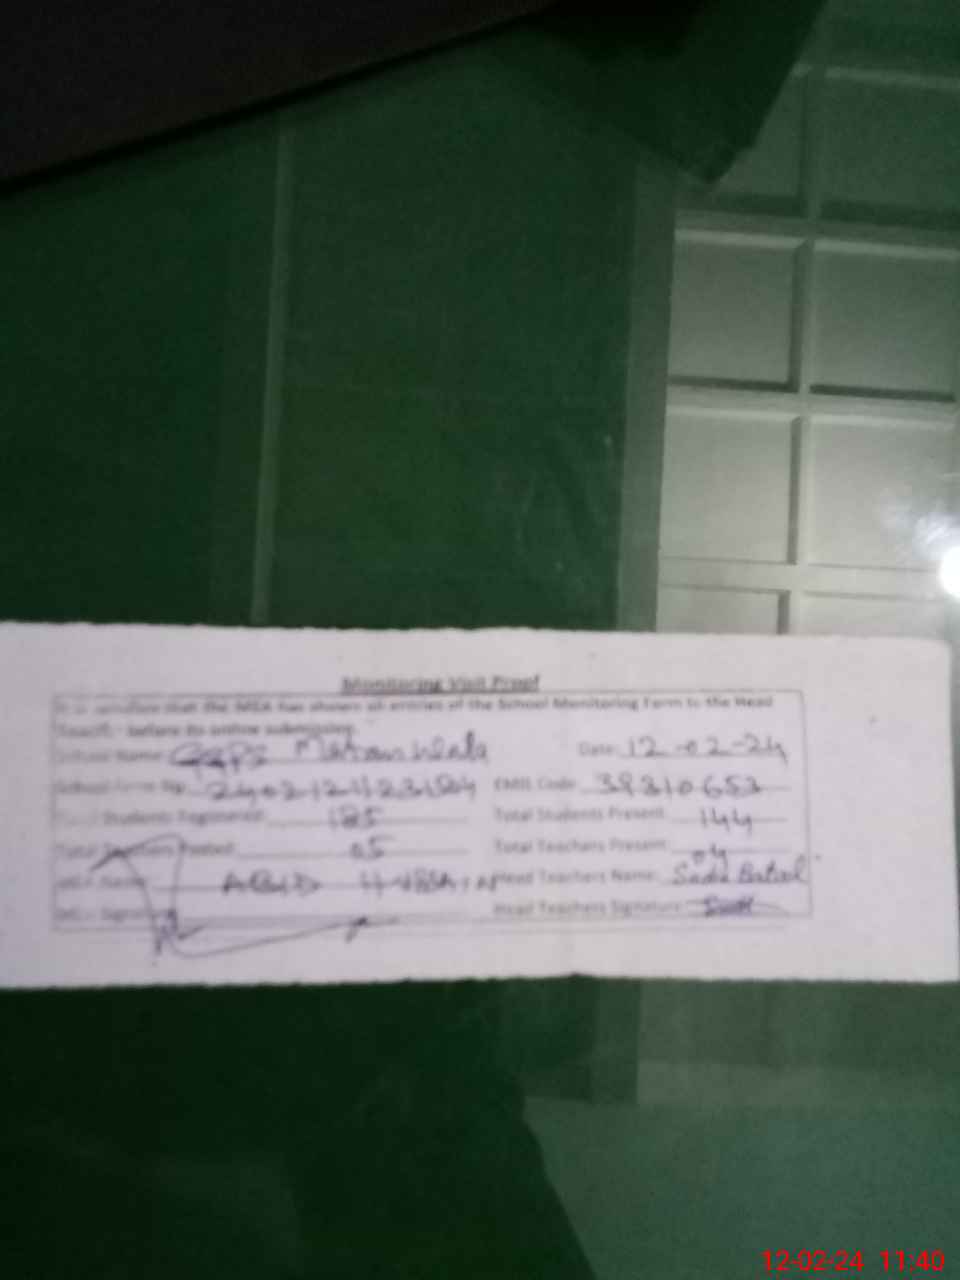 Monitoring Visit Proof
that the MEA has shown all entries of the School Monitoring Form to the Head
before its online submission.
School Name: GGPS Date: 12-02-24
School Form No. EMIS Code: 38310653
Students Registered: 185 Total Students Present: 144
Total Teachers Posted: 05 Total Teachers Present: 04
MEA Name: ABID HUSSAIN Head Teachers Name: Sadia Batool
MEA Signature Head Teachers Signature:
12-02-24 11:40